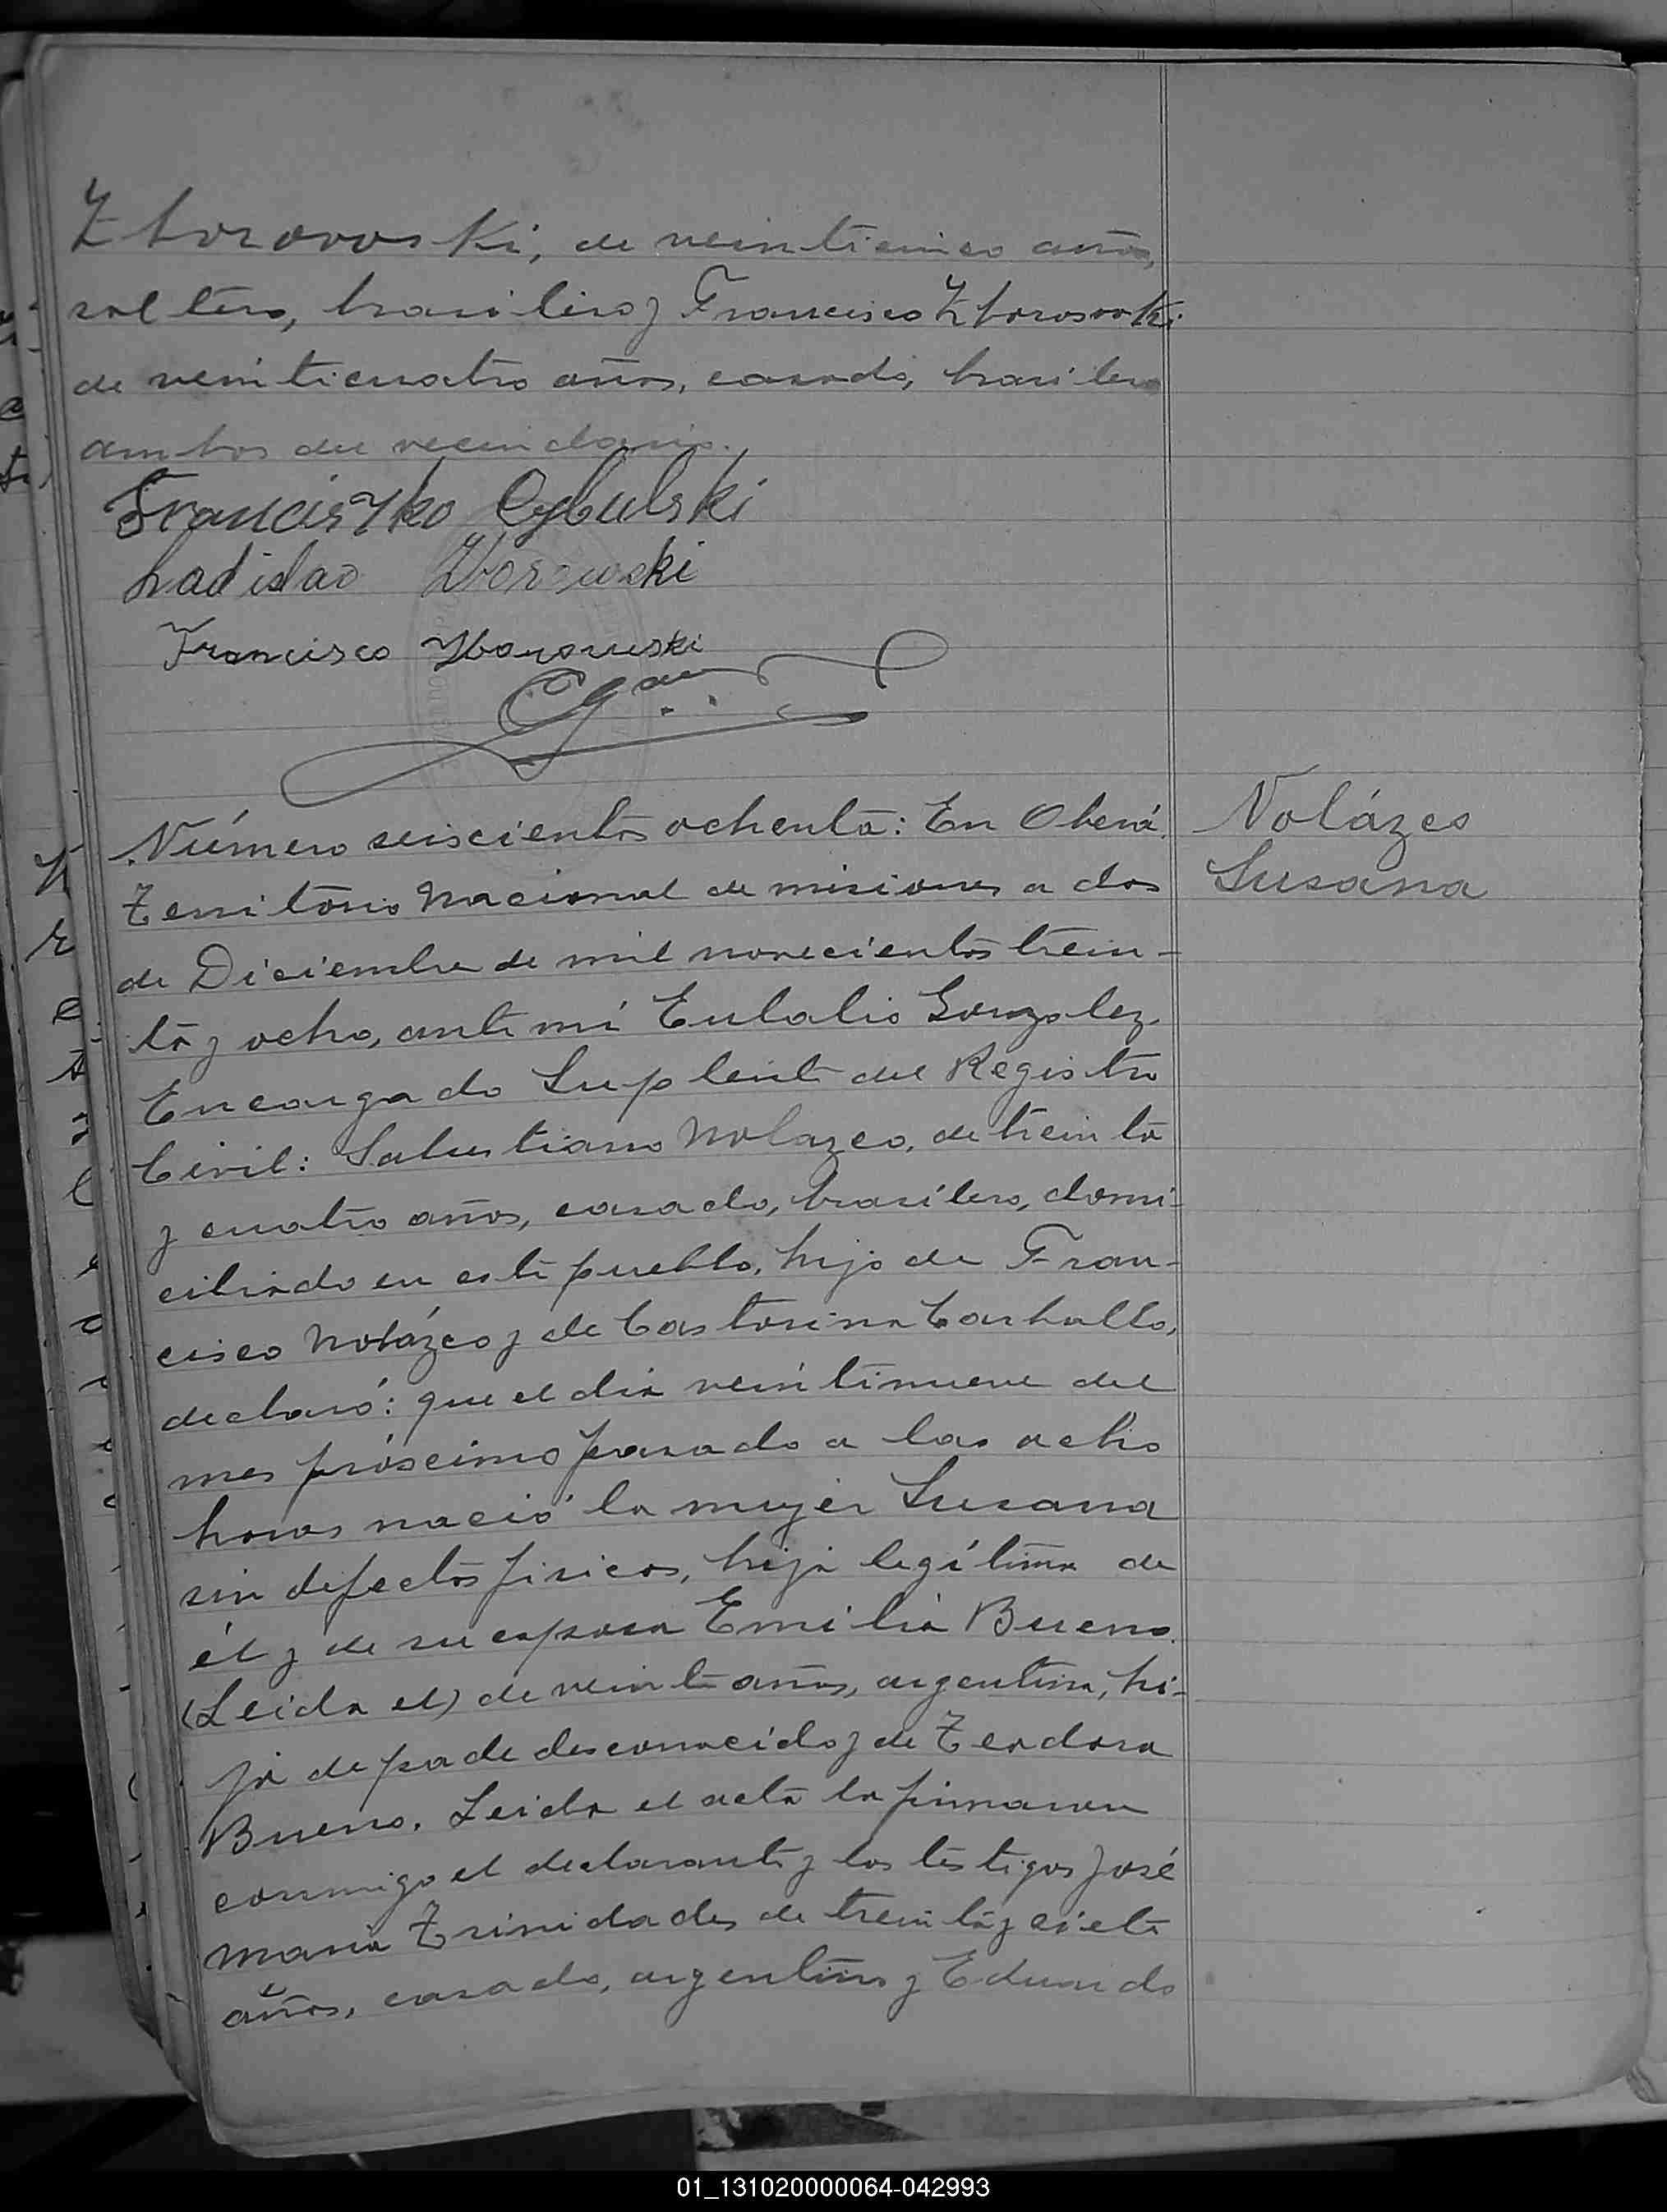 Zborovoski, de veinticinco años,
soltero, brasilero y Francisco Zborosvoski
de veinticuatro años, casado, brasilero
ambos del vecindario.
Franciszko Cybulski
Ladislao Zborowski
Francisco Zborowski
Número seiscientos ochenta: En Oberá
Territorio Nacional de Misiones a dos
de Diciembre de mil novecientos trein-
ta y ocho, ante mí Eulalio Gonzalez,
Encargado Suplente del Registro
Civil: Salustiano Nolazco, de treinta
y cuatro años, casado, brasilero, domi-
ciliado en este pueblo, hijo de Fran-
cisco Nolázco y de Castorina Carballo,
declaró: que el día veintinueve del
mes próscimo pasado a las ocho
horas nació la mujer Susana
sin defectos fisicos, hija legítima de
él y de su esposa Emilia Bueno.
(Leida el) de veinte años, argentina, hi-
ja de pade desconocido y de Teodora
Bueno. Leida el acta la firmaron
conmigo el declarante y los testigos José
María Trinidades de treinta y siete
años, casado, argentino y Eduardo
Nolázco
Susana
01_131020000064-042993